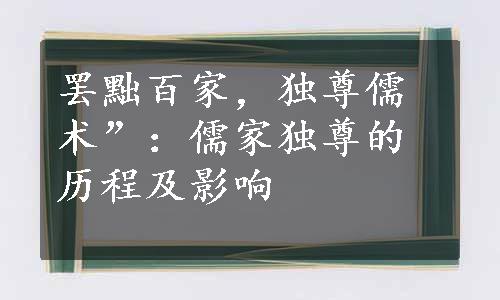 罢黜百家，独尊儒
术”：儒家独尊的
历程及影响